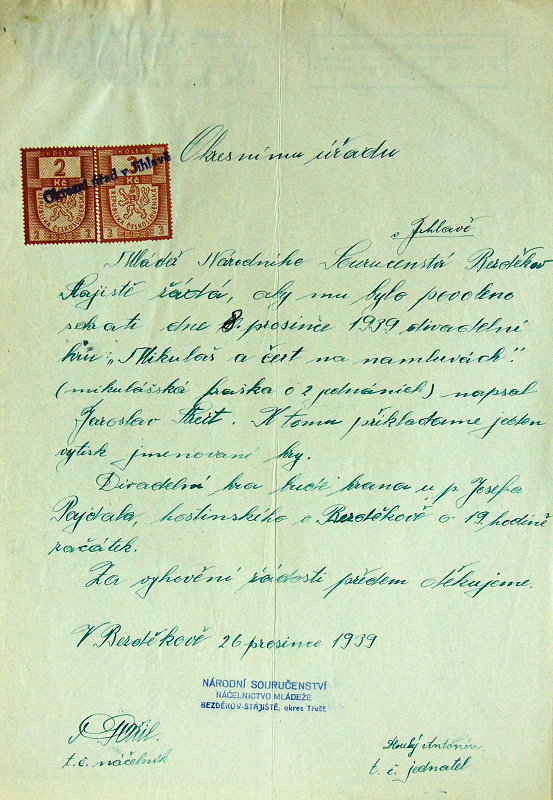 Okresnímu úřadu
KOLEK
KOLEK
2
3
Kč
Kč
Okresní úřad v Jihlavě
REPUBLIKA ČESKOSLOVENSKÁ
REPUBLIKA ČESKOSLOVENSKÁ
2 2 3 3
v Jihlavě
Mládež Národního Souručenství Bezděkov
Stajiště žádá, aby mu bylo povoleno
sehrati dne 8. prosince 1939 divadelní
hru: „Mikuláš a čert na namluvách".
(mikulášská fraška o 2 jednáních) napsal
Jaroslav Streit. K tomu příkládáme jeden
výtisk jmenované hry.
Divadelní hra bude hrana u p. Josefa
Pajdala, hostinského v Bezděkově o 19 hodině
začátek.
Za vyhovění žádosti předem děkujeme.
V Bezděkově 26 prosince 1939
NÁRODNÍ SOURUČENSTVÍ
NÁČELNICTVO MLÁDEŽE
BEZDĚKOV-STAJIŠTĚ, okres Třešť.
t. č. náčelník
Antonín
t. č. jednatel